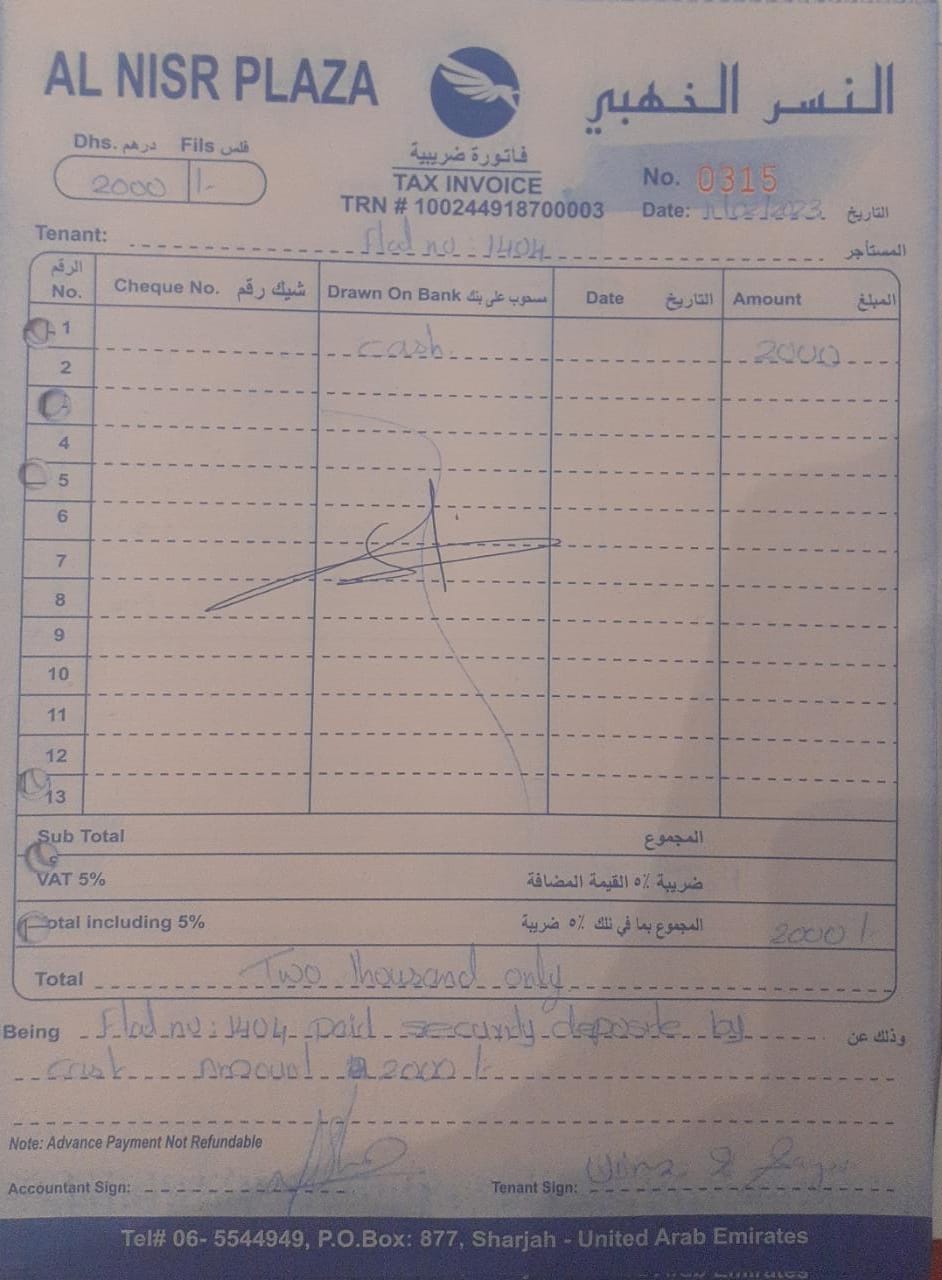 AL NISR PLAZA
النسر الخهبي
Dhs. درهم Fils فلس
2000 /-
فاتورة ضريبية
TAX INVOICE
TRN # 100244918700003
No. 0315
Date: /02/2023 التاريخ
Tenant: Flat no : 1404 المستأجر
الرقم No. Cheque No. شيك رقم Drawn On Bank مسحوب على بنك Date التاريخ Amount المبلغ
1 cash 2000
2
4
5
6
7
8
9
10
11
12
13
Sub Total المجموع
VAT 5% ضريبة ٥٪ القيمة المضافة
Total including 5% المجموع بما في ذلك ٥٪ ضريبة 2000 /-
Total Two thousand only
Being Flat no : 1404 paid security deposite by وذلك عن
cash Amount 2000 /-
Note: Advance Payment Not Refundable
Accountant Sign: Tenant Sign:
Tel# 06- 5544949, P.O.Box: 877, Sharjah - United Arab Emirates